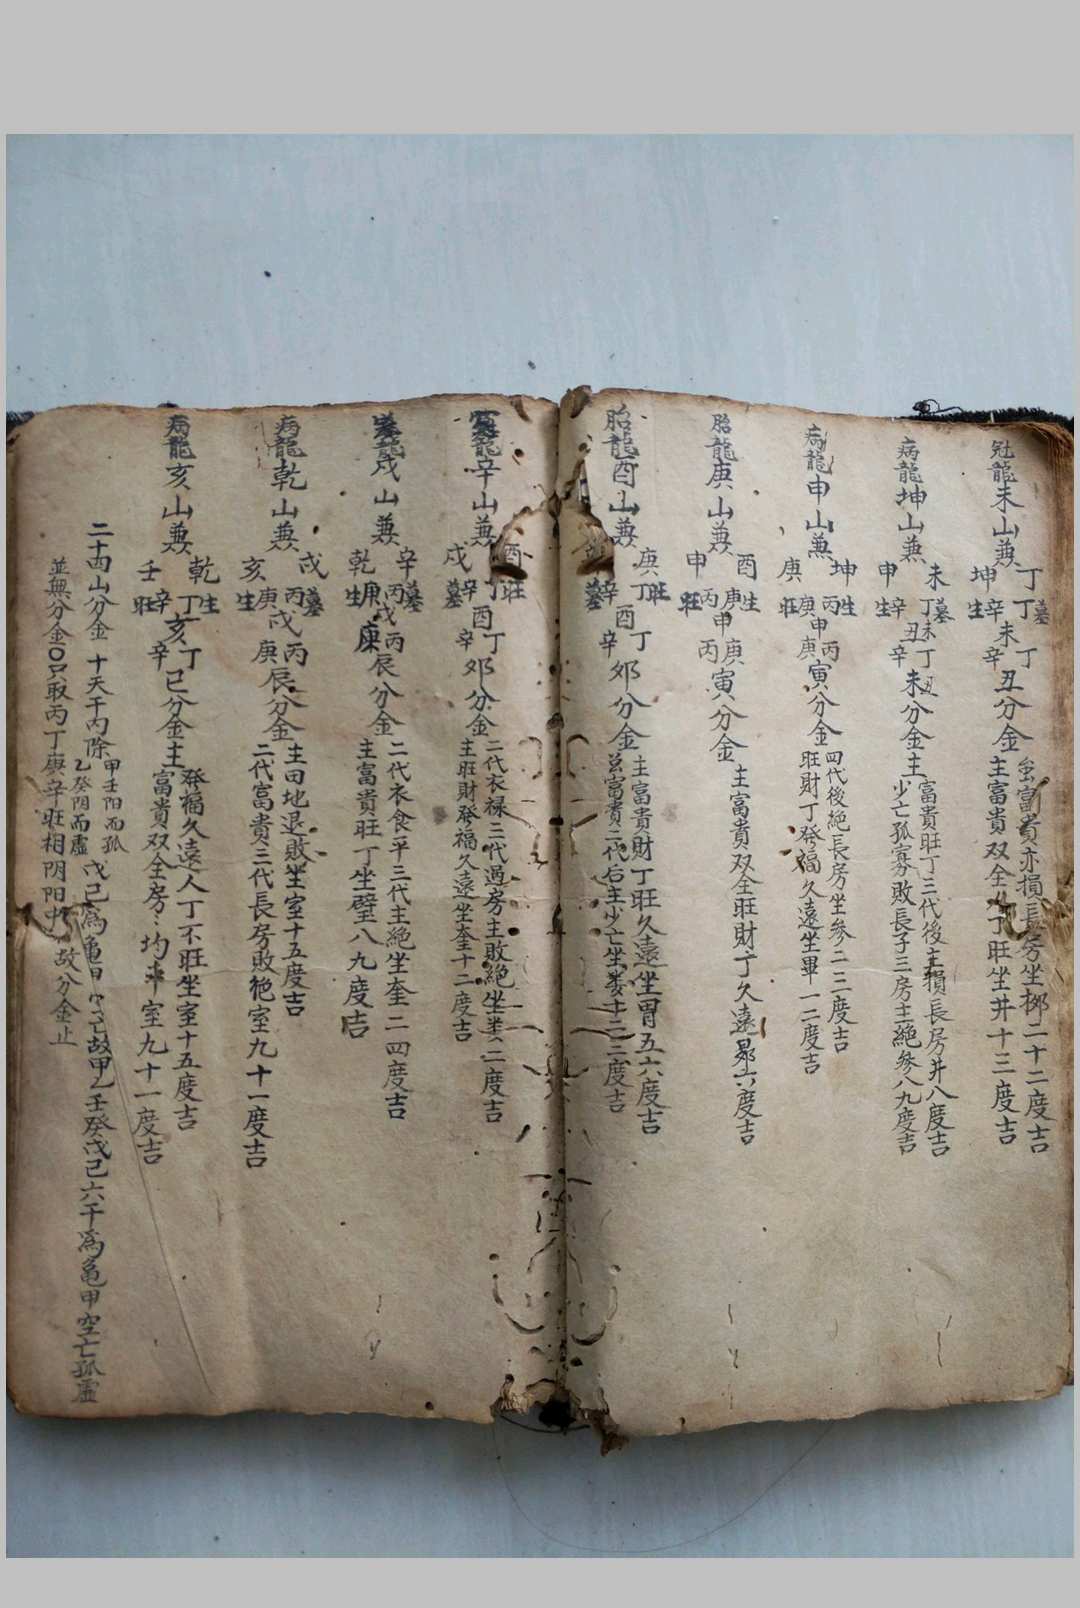 冠龍未山兼
丁墓
丁未丁丑分金
主富貴亦損長房坐柳二十二度吉
坤生
辛未辛丑分金
主富貴双全丁旺坐井十三度吉
病龍坤山兼
未墓
丁未丁丑
富貴旺丁三代後主損長房井八度吉
申生
辛丑辛未分金主
少亡孤寡敗長子三房主絕參八九度吉
病龍申山兼
坤生
丙申丙寅分金
四代後絕長房坐參二三度吉
庚旺
庚申庚寅分金
旺財丁發福久遠坐畢一二度吉
胎龍庚山兼
酉生
庚申庚寅分金
申旺
丙申丙寅分金
主富貴双全旺財丁久遠昴六度吉
胎龍酉山兼
庚旺
丁酉丁卯分金
主富貴財丁旺久遠坐胃五六度吉
墓
辛酉辛卯分金
富貴二代后主少亡坐婁十二三度吉
龍辛山兼
酉旺
丁酉丁卯分金
二代衣禄三代過房主敗絕坐婁二度吉
戌墓
辛酉辛卯分金
主旺財發福久遠坐奎十二度吉
龍戌山兼
辛墓
丙戌丙辰分金
二代衣食平三代主絕坐奎二四度吉
乾生
庚戌庚辰分金
主富貴旺丁坐壁八九度吉
病龍乾山兼
戌墓
丙戌丙辰分金
主田地退敗坐室十五度吉
亥生
庚戌庚辰分金
二代富貴三代長房敗絕室九十一度吉
病龍亥山兼
乾生
丁亥丁巳分金主
發福久遠人丁不旺坐室十五度吉
壬旺
辛亥辛巳分金主
富貴双全房〻均平室九十一度吉
二十四山分金十天干內除甲壬阳而孤乙癸阴而虛戊己為龜甲空亡故甲乙壬癸戊己六干為龜甲空亡孤虛
並無分金〇只取丙丁庚辛旺相阴阳故分金止